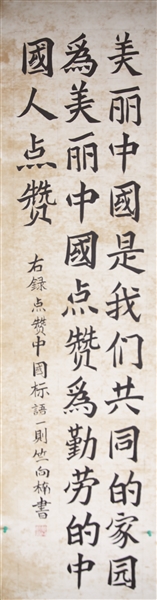 美丽中國是我们共同的家园
為美丽中國点赞為勤劳的中
國人点赞
右録点赞中國标語一则竺向榆書